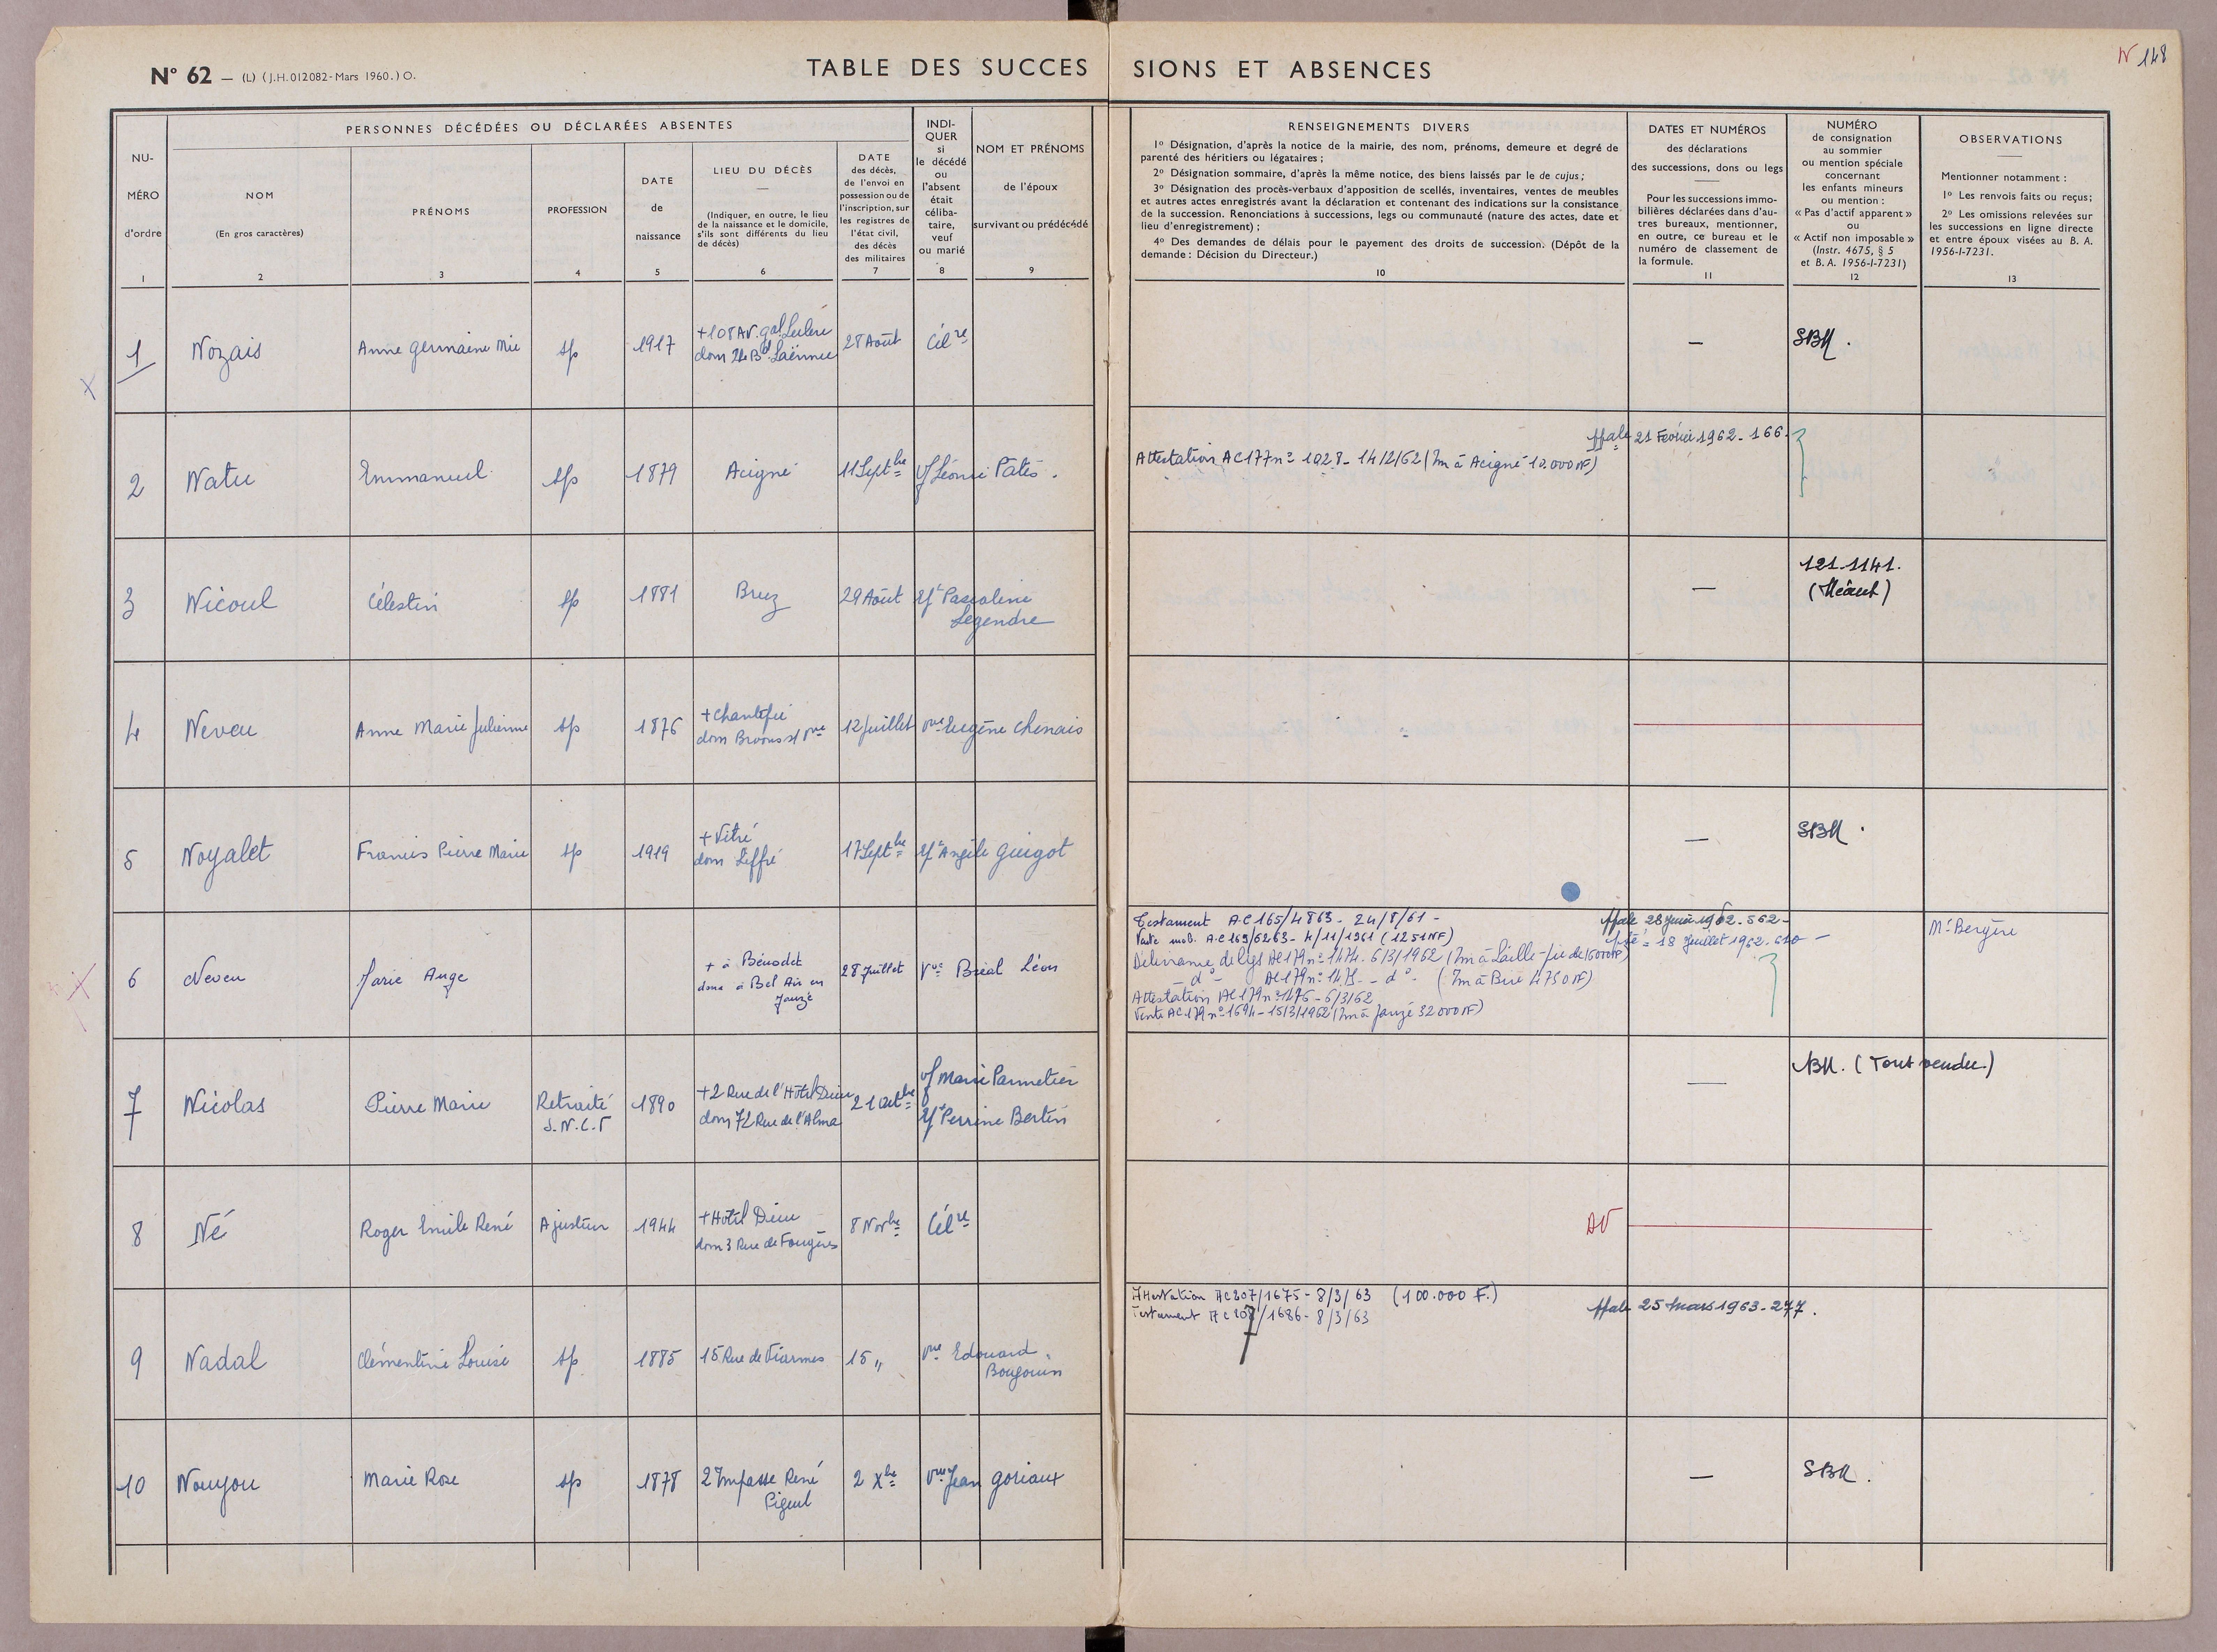 N° 62 — (L) (J.H. 012082 - Mars 1960.) O.
TABLE DES SUCCESSIONS ET ABSENCES
N 148
NU-
MÉRO
d'ordre
1
PERSONNES DÉCÉDÉES OU DÉCLARÉES ABSENTES
NOM
(En gros caractères)
2
PRÉNOMS
3
PROFESSION
4
DATE
de
naissance
5
LIEU DU DÉCÈS
(Indiquer, en outre, le lieu
de la naissance et le domicile,
s'ils sont différents du lieu
de décès)
6
DATE
des décès,
de l'envoi en
possession ou de
l'inscription, sur
les registres de
l'état civil,
des décès
des militaires
7
INDI-
QUER
si
le décédé
ou
l'absent
était
céliba-
taire,
veuf
ou marié
8
NOM ET PRÉNOMS
de l'époux
survivant ou prédécédé
9
RENSEIGNEMENTS DIVERS
1° Désignation, d'après la notice de la mairie, des nom, prénoms, demeure et degré de
parenté des héritiers ou légataires ;
2° Désignation sommaire, d'après la même notice, des biens laissés par le de cujus ;
3° Désignation des procès-verbaux d'apposition de scellés, inventaires, ventes de meubles
et autres actes enregistrés avant la déclaration et contenant des indications sur la consistance
de la succession. Renonciations à successions, legs ou communauté (nature des actes, date et
lieu d'enregistrement) ;
4° Des demandes de délais pour le payement des droits de succession. (Dépôt de la
demande : Décision du Directeur.)
10
DATES ET NUMÉROS
des déclarations
des successions, dons ou legs
Pour les successions immo-
bilières déclarées dans d'au-
tres bureaux, mentionner,
en outre, ce bureau et le
numéro de classement de
la formule.
11
NUMÉRO
de consignation
au sommier
ou mention spéciale
concernant
les enfants mineurs
ou mention :
« Pas d'actif apparent »
ou
« Actif non imposable »
(Instr. 4675, § 5
et B. A. 1956-I-7231)
12
OBSERVATIONS
Mentionner notamment :
1° Les renvois faits ou reçus ;
2° Les omissions relevées sur
les successions en ligne directe
et entre époux visées au B. A.
1956-I-7231.
13
1 Nozais Anne Germaine Mie sp 1917 +108 Av. gal Leclerc
dom 24 Bd Laënnec 28 Août Célre — SBM.
2 Natu Emmanuel sp 1879 Acigné 11 Septbre Vf Léonie Patis.
Attestation AC 177 n° 1028 - 14/2/62 (Im à Acigné 10.000 NF) 21 Février 1962 - 166.
3 Nicoul Célestin sp 1881 Bruz 29 Août Pascaline
Legendre — 121.1141.
4 Neveu Anne Marie Julienne sp 1876 + Chantepie
dom Brons s/ Vne 12 Juillet Vve Eugène Chenais
5 Noyalet Francis Pierre Marie sp 1919 + Vitré
dom Liffré 17 Septbre Angèle Guigot — SBM.
6 Neveu Marie Ange + à Bénodet
dom à Bel Air en
Janzé 28 Juillet Vve Bréal Léon
Testament AC 165/4863 - 24/8/61 -
Vente mob. AC 169/6263 - 4/11/1961 (1251 NF)
Délivrance de legs AC 179 n° 1474 - 6/3/1962
- d° - AC 179 n° 1475 - d° - (Im à Brie 4750 NF)
Attestation AC 179 n° 1476 - 6/3/62
Vente AC 179 n° 1694 - 15/3/1962 (Im à Janzé 32000 NF)
1962 - 562 -
18 Juillet 1962. 610 -
Me Bergère
7 Nicolas Pierre Marie Retraité
S.N.C.F 1890 +2 Rue de l'Hôtel Dieu
dom 72 Rue de l'Alma 21 Octbre Vf Marie Parmetier
Perrine Bertin — (Tout vendu.)
8 Né Roger Emile René Ajusteur 1944 + Hôtel Dieu
dom 3 Rue de Fougères 8 Novbre Célre
9 Nadal Clémentine Louise sp 1885 15 Rue de Viarmes 15 „ Vve Edouard
Bougouin
Attestation AC 207/1675 - 8/3/63 (100.000 F.)
Testament AC 207/1686 - 8/3/63
25 Mars 1963 - 277.
10 Nouyou Marie Rose sp 1878 2 Impasse René
2 Xbre Vve Jean Goriaux — SBM.